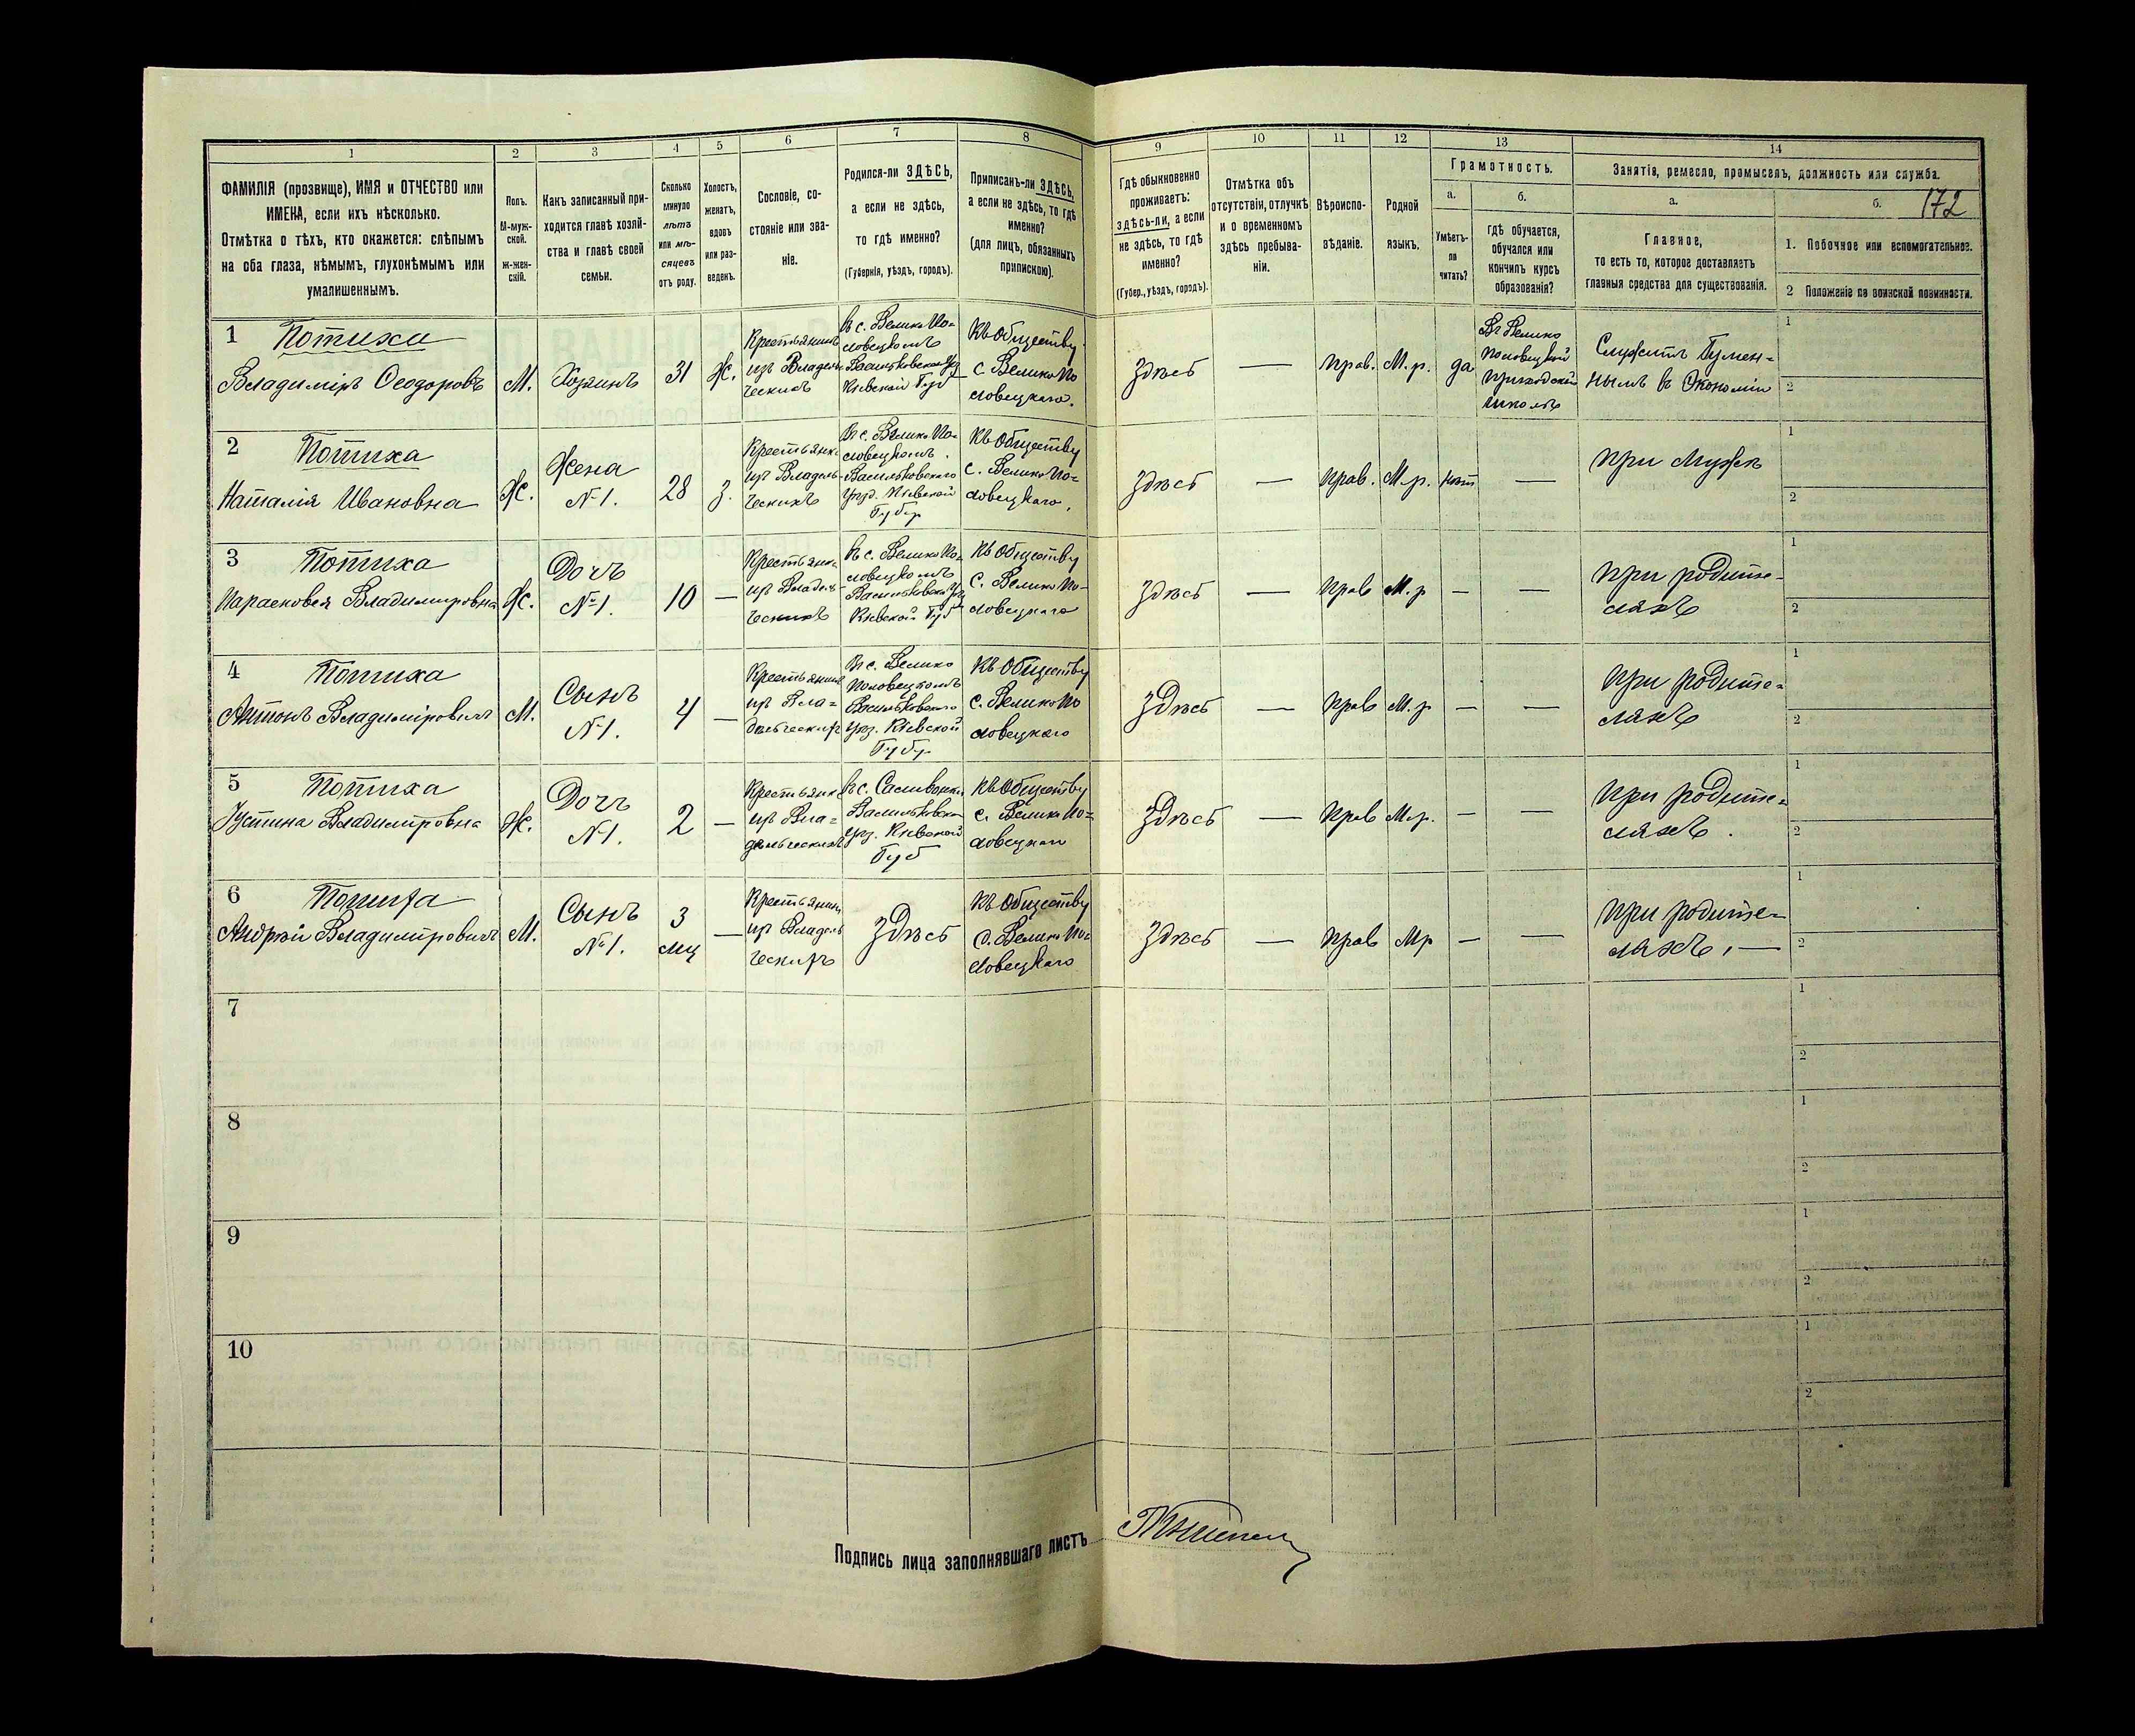 1
ФАМИЛІЯ (прозвище), ИМЯ и ОТЧЕСТВО или
ИМЕНА, если ихъ нѣсколько.
Отмѣтка о тѣхъ, кто окажется: слѣпымъ
на оба глаза, нѣмымъ, глухонѣмымъ или
умалишеннымъ.
2
Полъ.
М-муж-
ской.
Ж-жен-
скій.
3
Какъ записанный при-
ходится главѣ хозяй-
ства и главѣ своей
семьи.
4
Сколько
минуло
лѣтъ
или мѣ-
сяцевъ
отъ роду.
5
Холостъ,
женатъ,
вдовъ
или раз-
веденъ.
6
Сословіе, со-
стояніе или зва-
ніе.
7
Родился-ли ЗДѢСЬ,
а если не здѣсь,
то гдѣ именно?
(Губернія, уѣздъ, городъ).
8
Приписанъ-ли ЗДѢСЬ,
а если не здѣсь, то гдѣ
именно?
(для лицъ, обязанныхъ
припискою).
9
Гдѣ обыкновенно
проживаетъ:
здѣсь-ли, а если
не здѣсь, то гдѣ
именно?
(Губер., уѣздъ, городъ).
10
Отмѣтка объ
отсутствіи, отлучкѣ
и о временномъ
здѣсь пребыва-
ніи.
11
Вѣроиспо-
вѣданіе.
12
Родной
языкъ.
13
Грамотность.
а.
Умѣетъ-
ли
читать?
б.
гдѣ обучается,
обучался или
кончилъ курсъ
образованія?
14
Занятія, ремесло, промыселъ, должность или служба.
а.
Главное,
то есть то, которое доставляетъ
главныя средства для существованія.
б.
172
1. Побочное или вспомогательное.
2 Положеніе по воинской повинности.
1
Потиха
Владиміръ Ѳеодоровъ
М.
Хозяинъ
31
Ж.
Крестьянинъ
изъ Владель
ческихъ
въ с. Велико По-
ловецкомъ
Васильковскаго Уѣз
Кіевской Губ
Къ Обществу
с. Велико По
ловецкаго.
Здѣсь
—
Прав.
М. р.
да
Въ Велико
Половецкой
приходской
школѣ
Служитъ Гумен-
нымъ въ Экономіи
1
2
2
Потиха
Наталія Ивановна
Ж.
Жена
№ 1.
28
З.
Крестьянка
изъ Владель
ческихъ
Въ с. Велико По-
ловецкомъ.
Васильковскаго
Уѣз. Кіевской
Губер
Къ Обществу
с. Велико По-
ловецкаго.
Здѣсь
—
Прав.
М. р.
нѣт
—
При Мужѣ
1
2
3
Потиха
Парасковея Владимировна
Ж.
Дочь
№ 1.
10
—
Крестьянка
изъ Владель
ческихъ
въ с. Велико По-
ловецкомъ
Васильковскаго Уѣз
Кіевской Губ
Къ Обществу
с. Велико По-
ловецкаго
Здѣсь
—
Прав
М. р
—
—
При родите-
ляхъ
1
2
4
Потиха
Антонъ Владиміровичъ
М.
Сынъ
№ 1.
4
—
Крестьянинъ
изъ Вла-
дельческихъ
Въ с. Велико
Половецкомъ
Васильковскаго
Уѣз. Кіевской
Губер
Къ Обществу
с. Велико По
ловецкаго
Здѣсь
—
Прав
М. р
—
—
При родите-
ляхъ
1
2
5
Потиха
Устина Владиміровна
Ж.
Дочь
№ 1.
2
—
Крестьянка
изъ Вла-
дельческихъ
Уѣз. Кіевской
Губ
Къ Обществу
с. Велико По-
ловецкаго
Здѣсь
—
Прав
М. р.
—
—
При родите-
ляхъ.
1
2
6
Потиха
Андрѣй Владиміровичъ
М.
Сынъ
№ 1.
3
мц
—
Крестьянинъ
изъ Владель
ческихъ
Здѣсь
Къ Обществу
с. Велико По-
ловецкаго
Здѣсь
—
Прав
М р
—
—
При родите-
ляхъ, —
1
2
7
1
2
8
1
2
9
1
2
10
1
2
Подпись лица заполнявшаго листъ